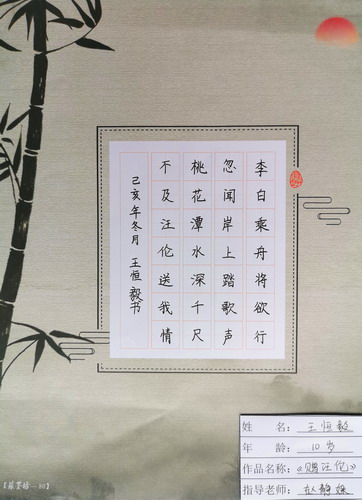 李白乘舟将欲行
忽闻岸上踏歌声
桃花潭水深千尺
不及汪伦送我情
己亥年冬月 王恒毅书
姓名：王恒毅
年龄：10岁
作品名称：《赠汪伦》
指导老师：赵